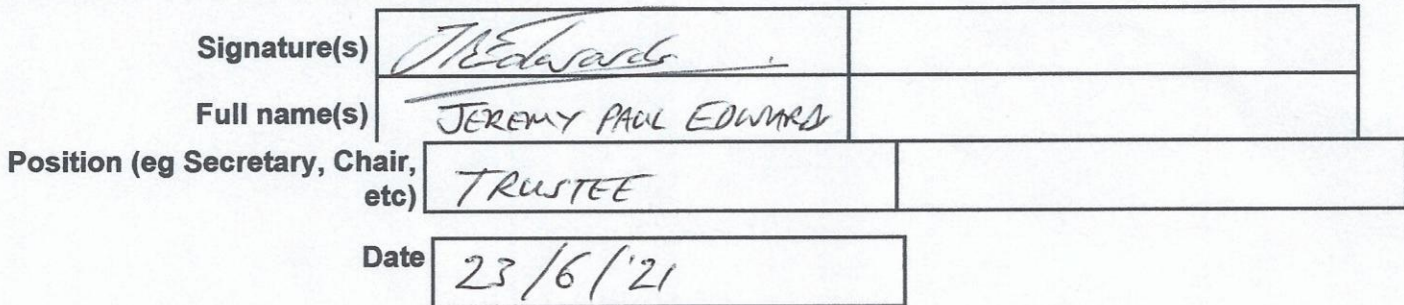 Signature(s) JPEdwards
Full name(s) JEREMY PAUL EDWARDS
Position (eg Secretary, Chair,
etc) TRUSTEE
Date 23/6/'21